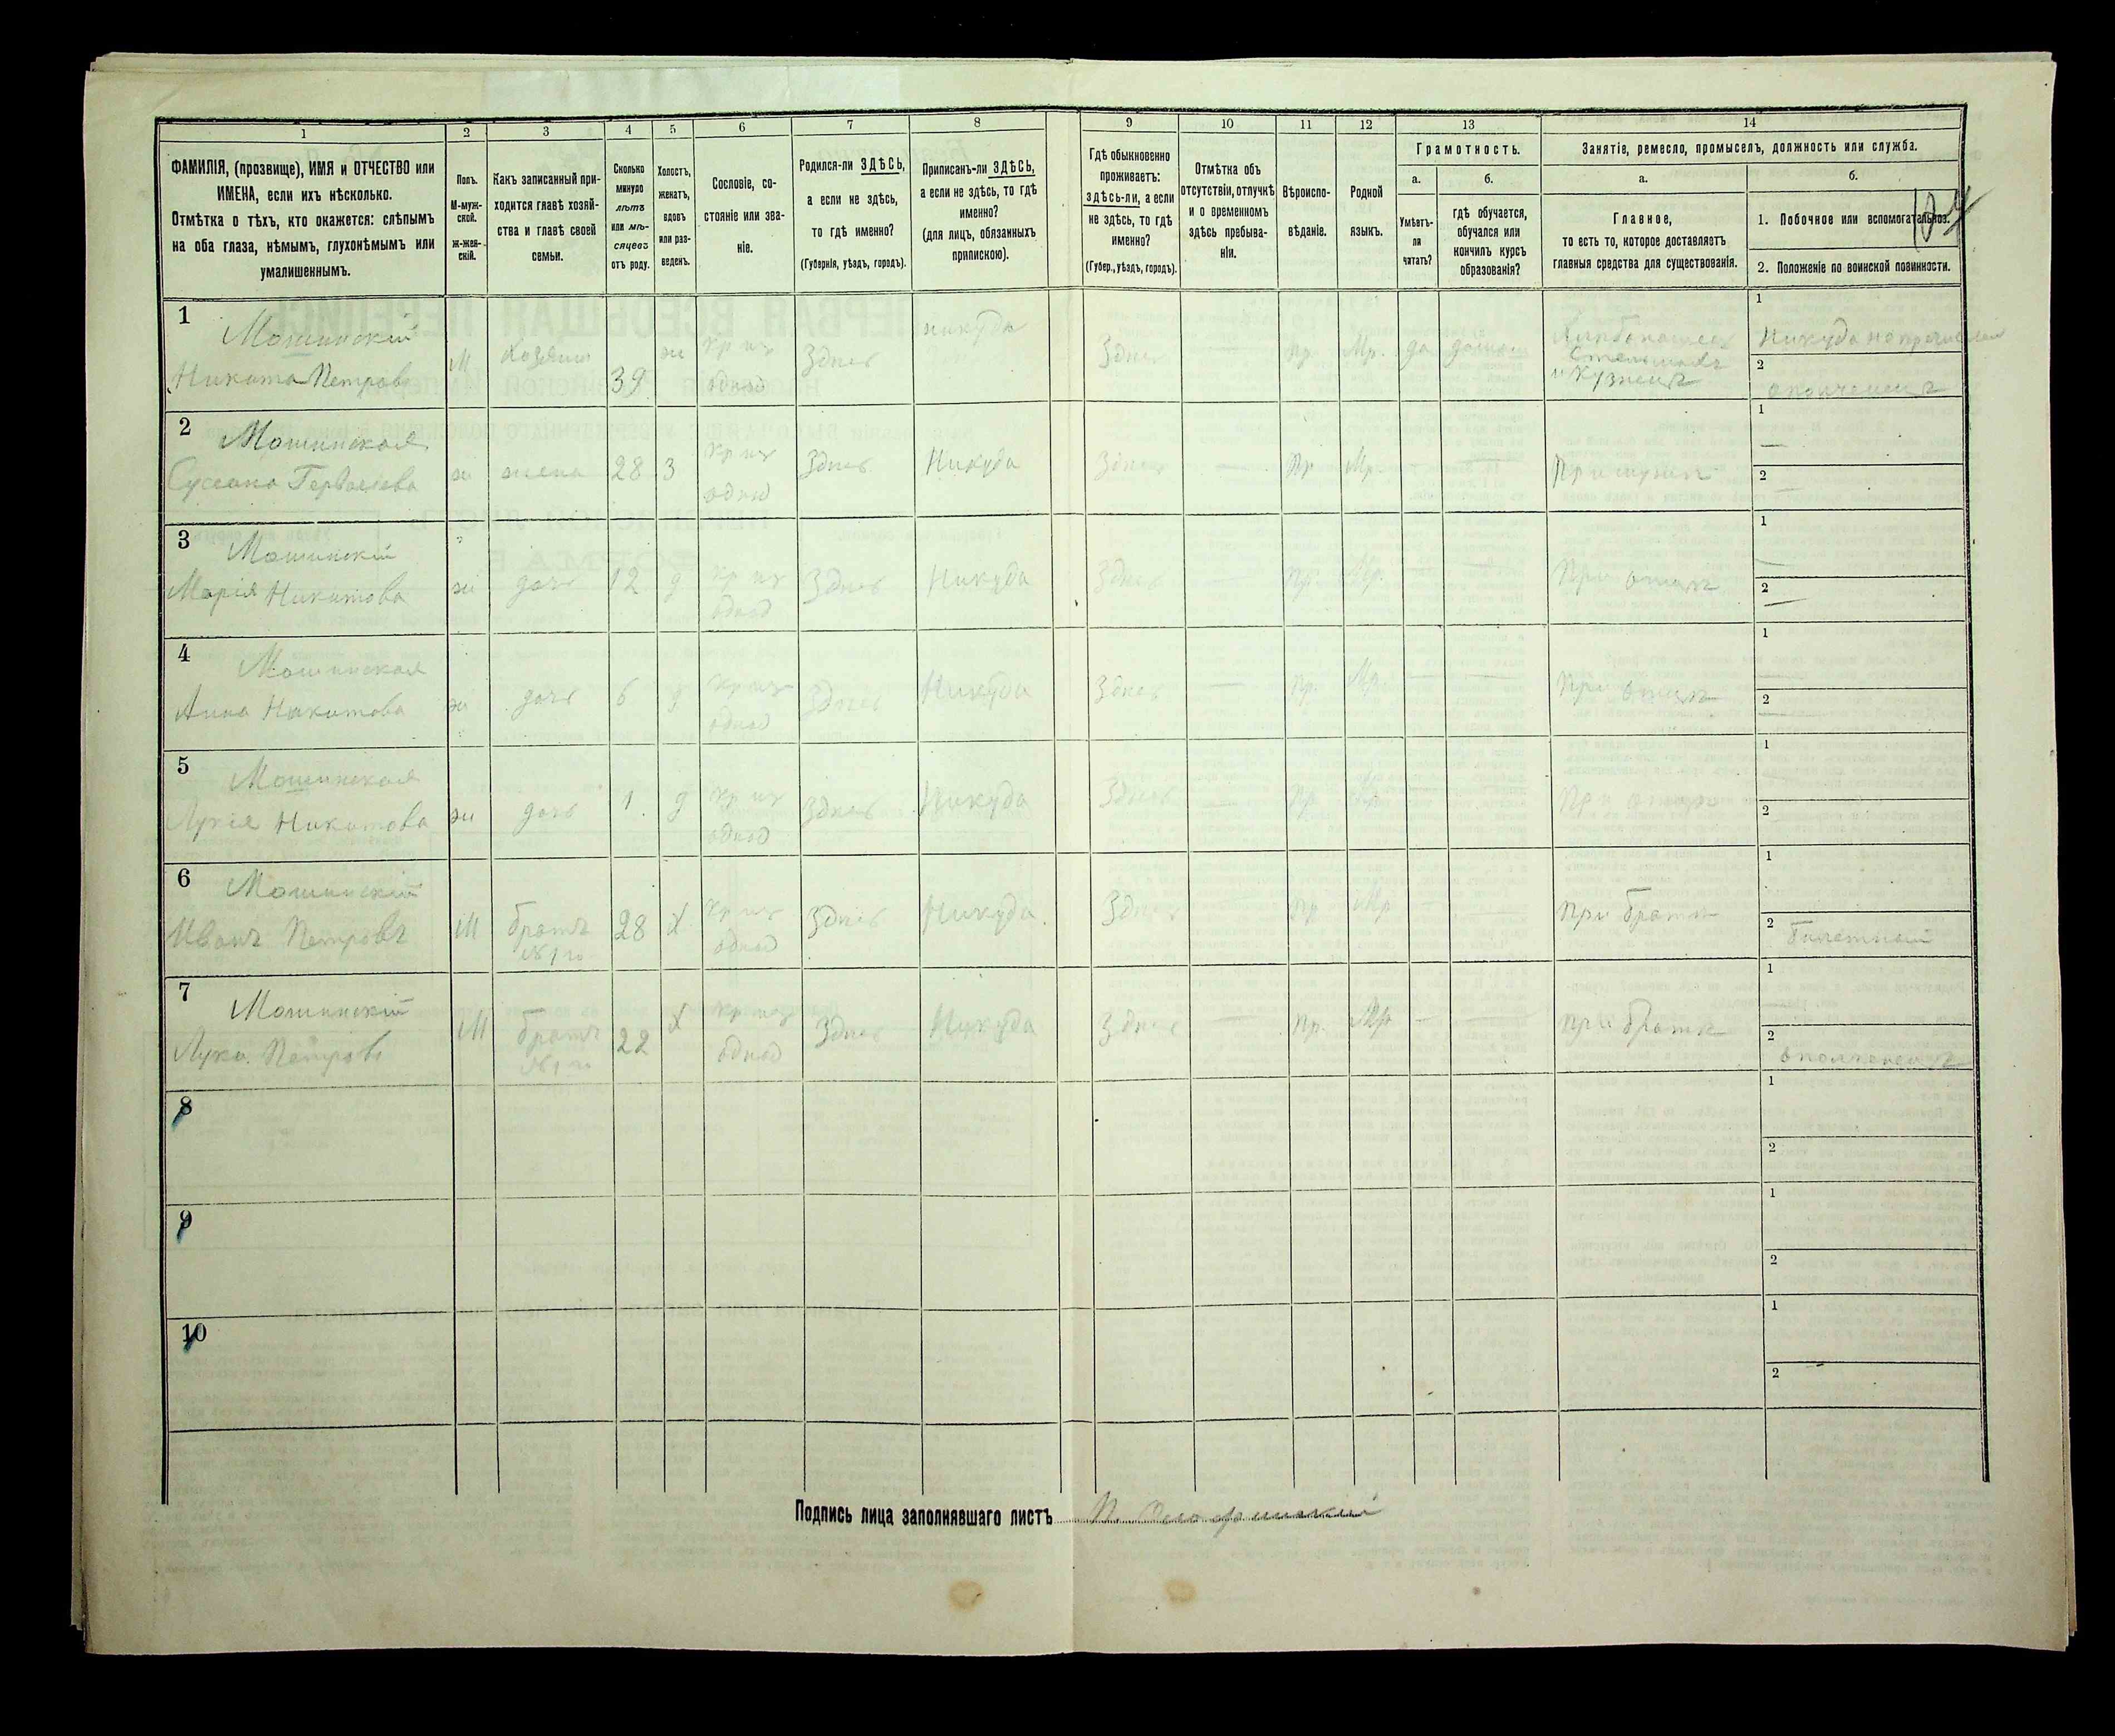 1 2 3 4 5 6 7 8 9 10 11 12 13 14
ФАМИЛІЯ, (прозвище), ИМЯ и ОТЧЕСТВО или
ИМЕНА, если ихъ нѣсколько.
Отмѣтка о тѣхъ, кто окажется: слѣпымъ
на оба глаза, нѣмымъ, глухонѣмымъ или
умалишеннымъ.
Полъ.
М-муж-
ской.
ж-жен-
скій.
Какъ записанный при-
ходится главѣ хозяй-
ства и главѣ своей
семьи.
Сколько
минуло
лѣтъ
или мѣ-
сяцевъ
отъ роду.
Холостъ,
женатъ,
вдовъ
или раз-
веденъ.
Сословіе, со-
стояніе или зва-
ніе.
Родился-ли ЗДѢСЬ,
а если не здѣсь,
то гдѣ именно?
(Губернія, уѣздъ, городъ).
Приписанъ-ли ЗДѢСЬ,
а если не здѣсь, то гдѣ
именно?
(для лицъ, обязанныхъ
припискою).
Гдѣ обыкновенно
проживаетъ:
здѣсь-ли, а если
не здѣсь, то гдѣ
именно?
(Губер., уѣздъ, городъ).
Отмѣтка объ
отсутствіи, отлучкѣ
и о временномъ
здѣсь пребыва-
ніи.
Вѣроиспо-
вѣданіе.
Родной
языкъ.
Грамотность.
а.
Умѣетъ-
ли
читать?
б.
гдѣ обучается,
обучался или
кончилъ курсъ
образованія?
Занятіе, ремесло, промыселъ, должность или служба.
а.
Главное,
то есть то, которое доставляетъ
главныя средства для существованія.
б.
1. Побочное или вспомогательное.
2. Положеніе по воинской повинности.
1 Мошинскій
Никита Петровъ
М Хозяин 39 ж Кр из
однод Здѣсь никуда Здѣсь Пр. Мр. да
и Кузнецъ
1 Никуда
2 ополченецъ
2 Мошинская
ж жена 28 З Кр из
однод Здѣсь Никуда Здѣсь — Пр. Мр. — — При мужѣ
1 —
2 —
3 Мошинскій
Марія Никитова
ж дочь 12 д Кр из
однод Здѣсь Никуда Здѣсь — Пр. Мр. — — При отцѣ
1 —
2 —
4 Мошинская
Анна Никитова
ж дочь 6 д Кр из
однод Здѣсь Никуда Здѣсь — Пр. Мр. — — При отцѣ
1
2 —
5 Мошинская
Лукія Никитова
ж дочь 1. д Кр из
однод Здѣсь Никуда Здѣсь — Пр. Мр. При отцѣ
1
2
6 Мошинскій
Иванъ Петровъ
М братъ
№ 1го 28 Х Кр из
однод Здѣсь Никуда. Здѣсь — Пр. Мр. — — при братѣ
1
2 Билетный
7 Мошинскій
Лука Петровъ
М братъ
№ 1го 22 Х Кр из
однод Здѣсь Никуда Здѣсь — Пр. Мр. — — при братѣ
1
2 ополченецъ
8
1
2
9
1
2
10
1
2
Подпись лица заполнявшаго листъ